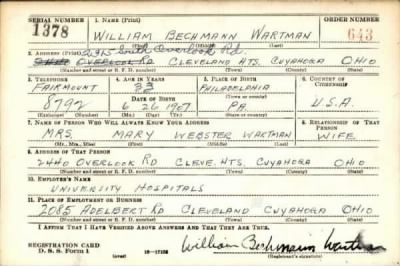 SERIAL NUMBER 1. NAME (Print) ORDER NUMBER
1378 WILLIAM BECHMANN WARTMAN 643
(First) (Middle) (Last)
2. ADDRESS (Print) 2915 South Overlook Rd.
2440 OVERLOOK RD CLEVELAND HTS. CUYAHOGA OHIO
(Number and street or R. F. D. number) (Town) (County) (State)
3. TELEPHONE 4. AGE IN YEARS 5. PLACE OF BIRTH 6. COUNTRY OF CITIZENSHIP
FAIRMOUNT 33 PHILADELPHIA
DATE OF BIRTH (Town or county)
8792 6 26 1907 PA. U.S.A.
(Exchange) (Number) (Mo.) (Day) (Yr.) (State or country)
7. NAME OF PERSON WHO WILL ALWAYS KNOW YOUR ADDRESS 8. RELATIONSHIP OF THAT PERSON
MRS. MARY WEBSTER WARTMAN WIFE
(Mr., Mrs., Miss) (First) (Middle) (Last)
9. ADDRESS OF THAT PERSON
2440 OVERLOOK RD CLEVE. HTS. CUYAHOGA OHIO
(Number and street or R. F. D. number) (Town) (County) (State)
10. EMPLOYER'S NAME
UNIVERSITY HOSPITALS
11. PLACE OF EMPLOYMENT OR BUSINESS
2085 ADELBERT RD CLEVELAND CUYAHOGA OHIO
(Number and street or R. F. D. number) (Town) (County) (State)
I AFFIRM THAT I HAVE VERIFIED ABOVE ANSWERS AND THAT THEY ARE TRUE.
REGISTRATION CARD
D. S. S. Form 1 William Bechmann Wartman
(Registrant's signature)